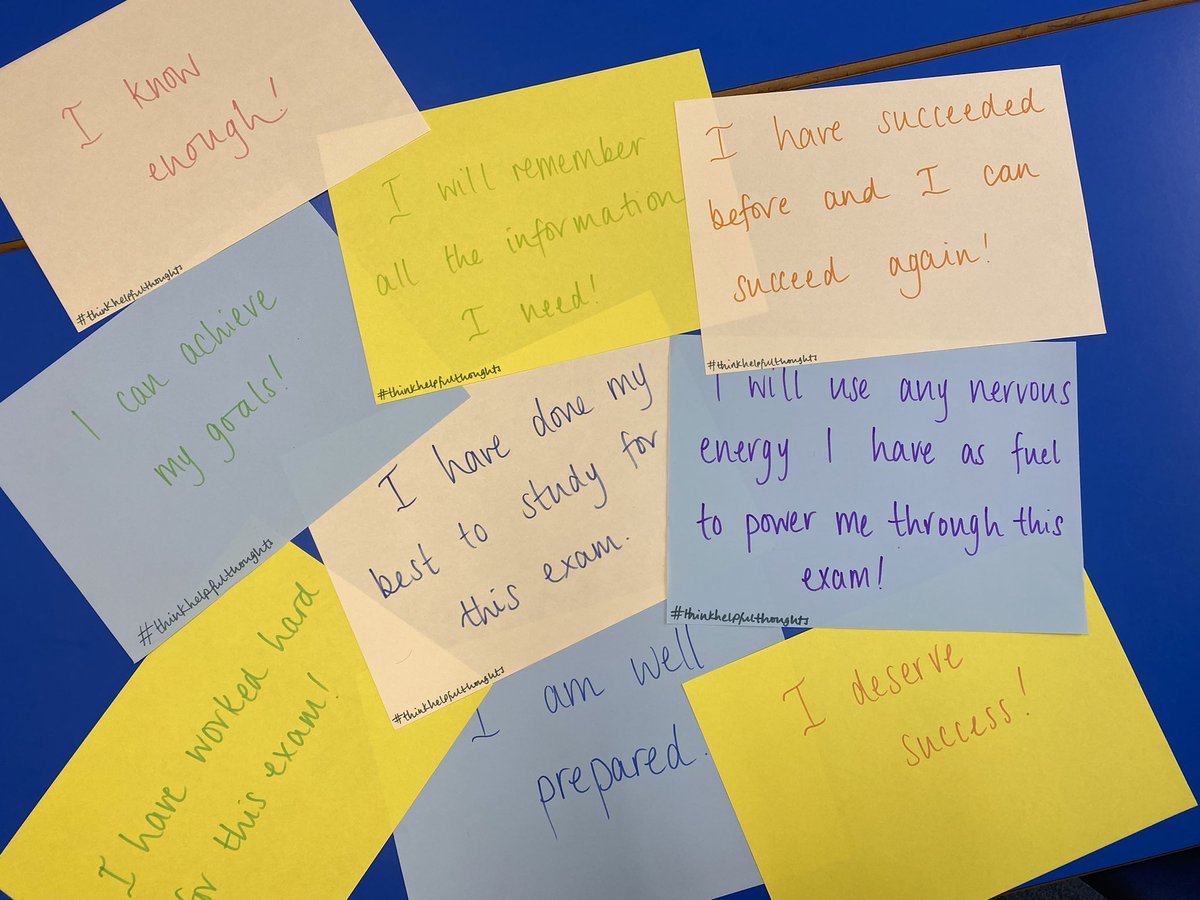 I know
enough!
#thinkhelpfulthoughts
I will remember
all the information
I need!
#thinkhelpfulthoughts
I have succeeded
before and I can
succeed again!
#thinkhelpfulthoughts
I can achieve
my goals!
#thinkhelpfulthoughts
I have done my
best to study for
this exam.
#thinkhelpfulthoughts
I will use any nervous
energy I have as fuel
to power me through this
exam!
#thinkhelpfulthoughts
I have worked hard
for this exam!
I am well
prepared.
I deserve
success!